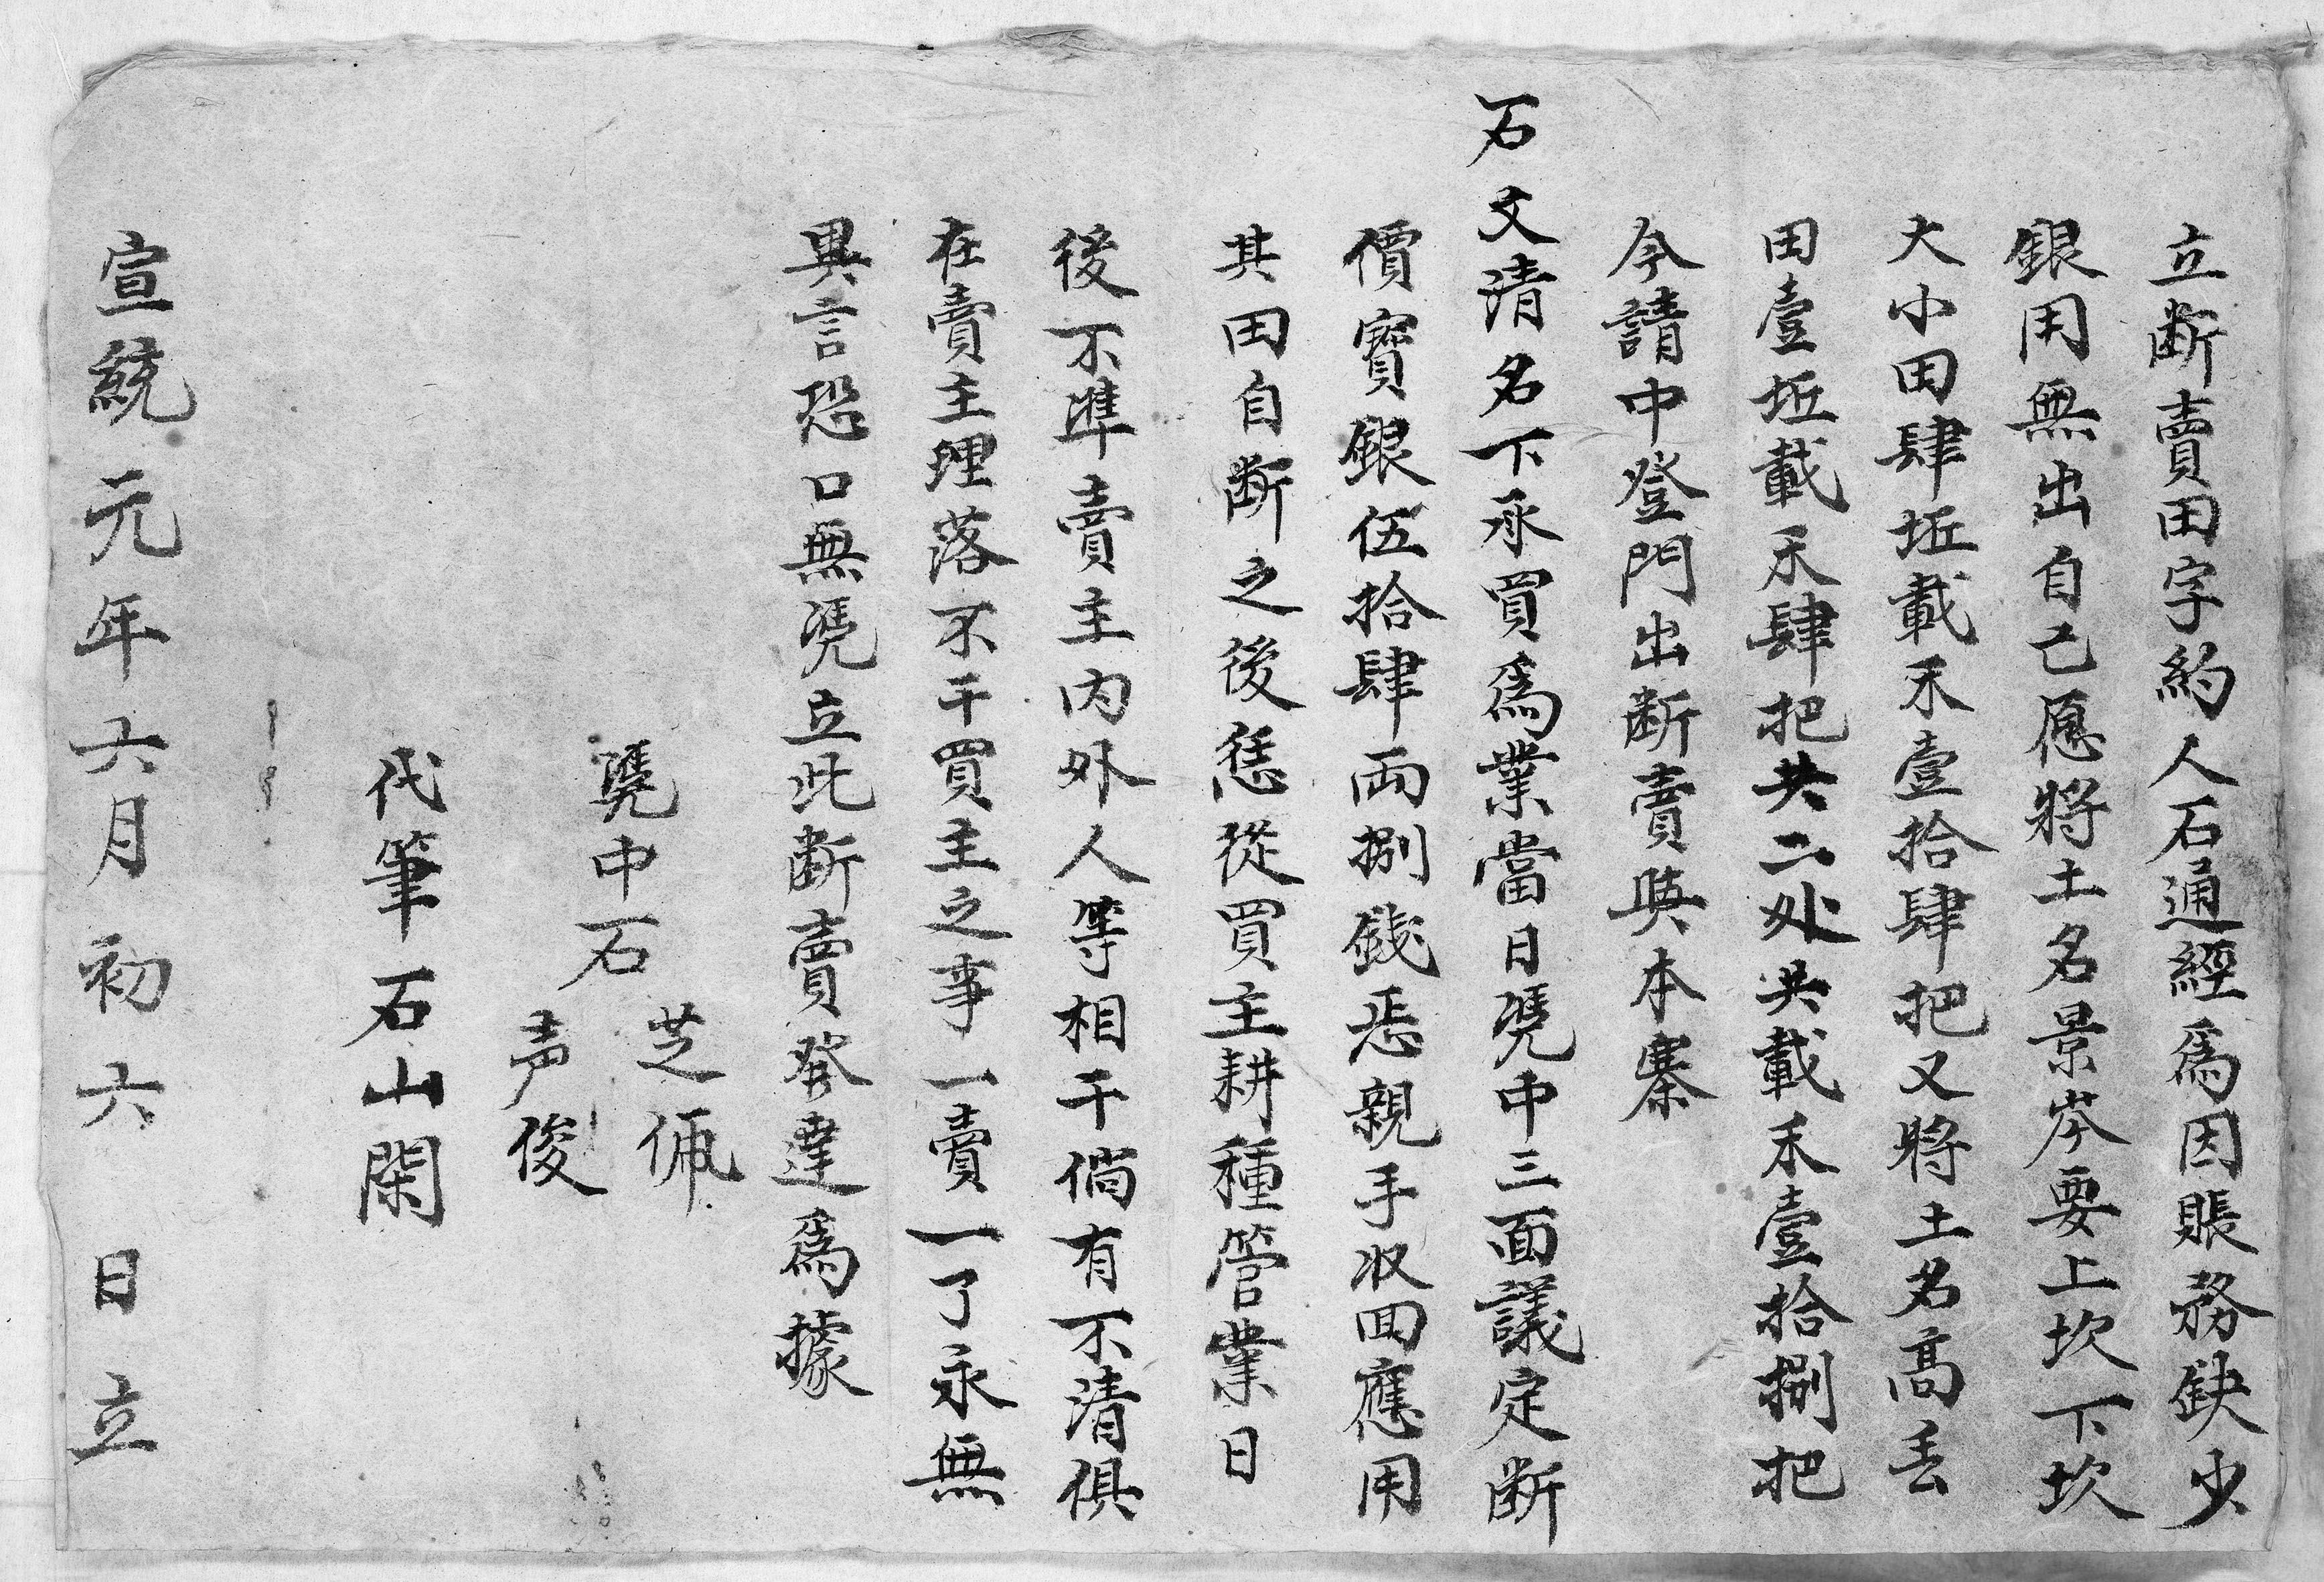 立断賣田字約人石通經爲因賬務缺少
銀用無出自己愿將土名景岑要上坎下坎
大小田肆坵載禾壹拾肆把又將土名高丢
田壹坵載禾肆把共二处共載禾壹拾捌把
今請中登門出断賣與本寨
石文清名下承買爲業當日凴中三面議定断
價寳銀伍拾肆両捌錢悉親手收回應用
其田自断之後恁從買主耕種管業日
後不準賣主内外人等相干倘有不清俱
在賣主理落不干買主之事一賣一了永無
異言恐口無凴立此断賣發達爲據
凴中石
芝佩
声俊
代筆石山閑
宣統元年六月初六日立